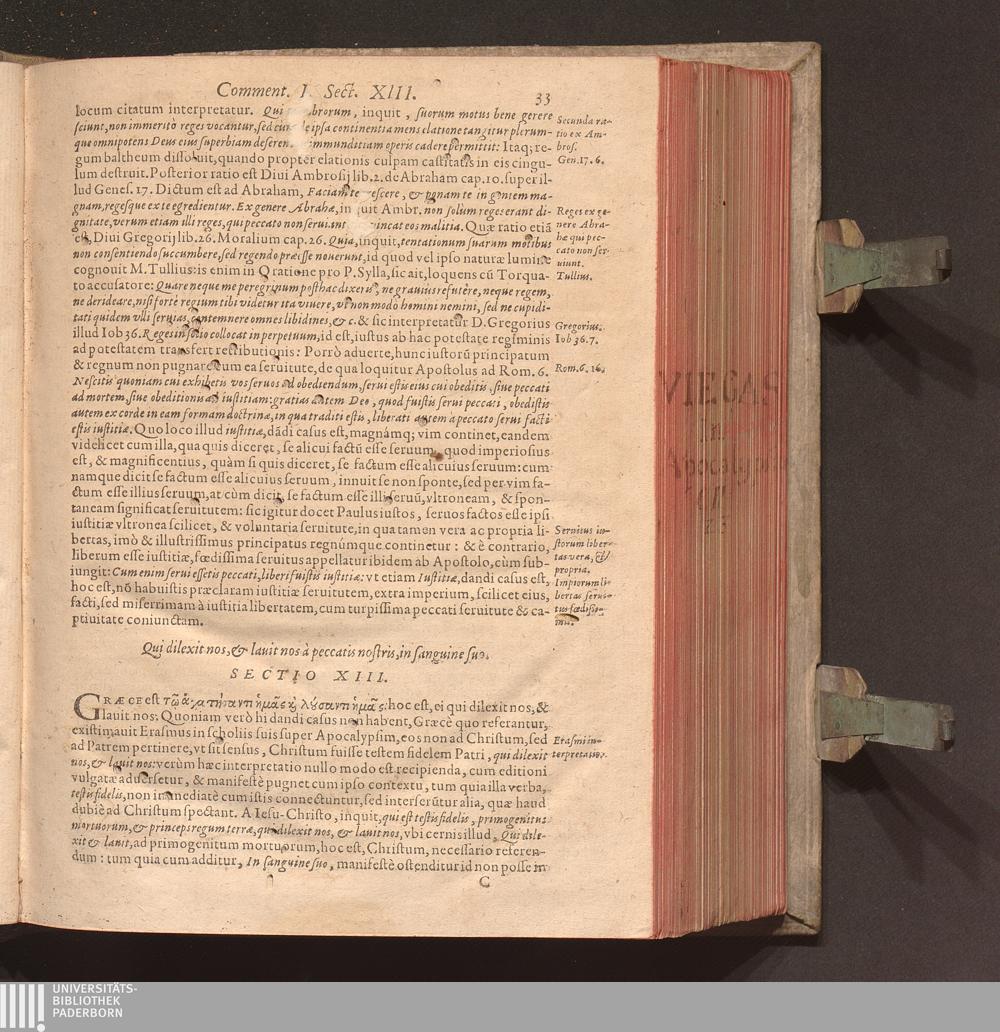 Comment. I. Sect. XIII.
33
locum citatum interpretatur. Qui brorum, inquit, suorum motus bene gerere
sciunt, non immeritò reges vocantur, sed cùm ipsa continentia mens elatione tangitur plerum-
que omnipotens Deus eius superbiam deserens mmunditiam operis cadere permittit: Itaq; re-
gum baltheum dissoluit, quando propter elationis culpam castitatis in eis cingu-
lum destruit. Posterior ratio est Diui Ambrosij lib. 2. de Abraham cap. 10. super il-
lud Genes. 17. Dictum est ad Abraham, Faciam te escere, & ponam te in gentem ma-
gnam, regesque ex te egredientur. Ex genere Abrahæ, in uit Ambr. non solum reges erant di-
gnitate, verum etiam illi reges, qui peccato non seruiunt vincat eos malitia. Quæ ratio etiã
est, Diui Gregorij lib. 26. Moralium cap. 26. Quia, inquit, tentationum suarum motibus
non consentiendo succumbere, sed regendo præesse nouerunt, id quod vel ipso naturæ lumine
cognouit M. Tullius: is enim in Oratione pro P. Sylla, sic ait, loquens cũ Torqua-
to accusatore: Quare neque me peregrinum posthac dixeris, ne grauius refutêre, neque regem,
ne derideare, nisi fortè regium tibi videtur ita viuere, vt non modò homini nemini, sed ne cupidi-
tati quidem vlli seruias, contemnere omnes libidines, &c. & sic interpretatur D. Gregorius
illud Iob 36. Reges in solio collocat in perpetuum, id est, iustus ab hac potestate regiminis
ad potestatem transfert retributionis: Porrò aduerte, hunc iustorũ principatum
& regnum non pugnare cum ea seruitute, de qua loquitur Apostolus ad Rom. 6.
Nescitis quoniam cui exhibetis vos seruos ad obediendum, serui estis eius cui obeditis, siue peccati
ad mortem, siue obeditionis ad iustitiam: gratias autem Deo, quod fuistis serui peccati, obedistis
autem ex corde in eam formam doctrinæ, in qua traditi estis, liberati autem à peccato serui facti
estis iustitiæ. Quo loco illud iustitiæ, dãdi casus est, magnámq; vim continet, eandem
videlicet cum illa, qua quis diceret, se alicui factũ esse seruum, quod imperiosius
est, & magnificentius, quàm si quis diceret, se factum esse alicuius seruum: cum
namque dicit se factum esse alicuius seruum, innuit se non sponte, sed per vim fa-
ctum esse illius seruum, at cùm dicit, se factum esse illi seruũ, vltroneam, & spon-
taneam significat seruitutem: sic igitur docet Paulus iustos, seruos factos esse ipsi
iustitiæ vltronea scilicet, & voluntaria seruitute, in qua tamen vera ac propria li-
bertas, imò & illustrissimus principatus regnúmque continetur: & è contrario,
liberum esse iustitiæ, fœdissima seruitus appellatur ibidem ab Apostolo, cùm sub-
iungit: Cum enim serui essetis peccati, liberi fuistis iustitiæ: vt etiam Iustitiæ, dandi casus est,
hoc est, nõ habuistis præclaram iustitiæ seruitutem, extra imperium, scilicet eius,
facti, sed miserrimam à iustitia libertatem, cum turpissima peccati seruitute & ca-
ptiuitate coniunctam.
Secunda ra-
tio ex Am-
bros.
Gen. 17. 6.
Reges ex ge-
nere Abra-
hæ qui pec-
cato non ser-
uiunt.
Tullius.
Gregorius.
Iob 36. 7.
Rom. 6. 16.
Seruitus iu-
storum liber-
tas vera, &
propria.
Impiorum li-
bertas serui-
tus fœdissi-
ma.
Qui dilexit nos, & lauit nos à peccatis nostris, in sanguine suo.
SECTIO XIII.
GRÆCE est τῷ ἀγαπήσαντι ἡμᾶς κ λύσαντι ἡμᾶς: hoc est, ei qui dilexit nos, &
lauit nos: Quoniam verò hi dandi casus non habent, Græcè quo referantur,
existimauit Erasmus in scholiis suis super Apocalypsim, eos non ad Christum, sed
ad Patrem pertinere, vt sit sensus, Christum fuisse testem fidelem Patri, qui dilexit
nos, & lauit nos: verùm hæc interpretatio nullo modo est recipienda, cum editioni
vulgatæ aduersetur, & manifestè pugnet cum ipso contextu, tum quia illa verba,
testis fidelis, non immediatè cum istis connectuntur, sed interserũtur alia, quæ haud
dubiè ad Christum spectant. A Iesu-Christo, inquit, qui est testis fidelis, primogenitus
mortuorum, & princeps regum terræ, qui dilexit nos, & lauit nos, vbi cernis illud, Qui dile-
xit & lauit, ad primogenitum mortuorum, hoc est, Christum, necessario referen-
dum: tum quia cum additur, In sanguine suo, manifestè ostenditur id non posse in
Erasmi in-
terpretatio.
C
VIEGAS
In
Apocalypsin
UNIVERSITÄTS-
BIBLIOTHEK
PADERBORN